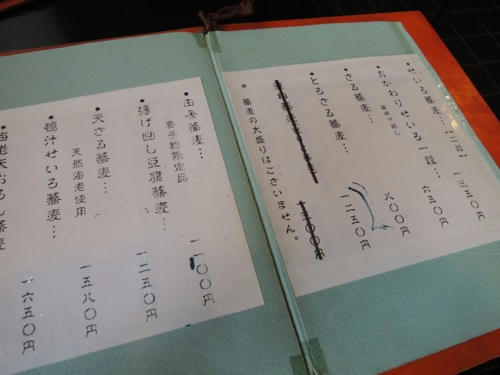 ・せいろ蕎麦… 一三五〇円
・おかわりせいろ一段… 六五〇円
・ざる蕎麦… 八〇〇円
・とろざる蕎麦… 一二五〇円
三〇〇円
＊ 蕎麦の大盛りはございません。
・田舎蕎麦… 一一〇〇円
・揚げ出し豆腐蕎麦… 一二五〇円
・天ざる蕎麦… 一五八〇円
天然海老使用
・鴨汁せいろ蕎麦… 一六五〇円